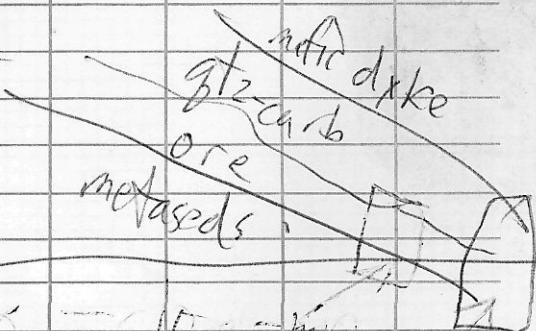 mafic dyke
qtz-carb
ore
metaseds